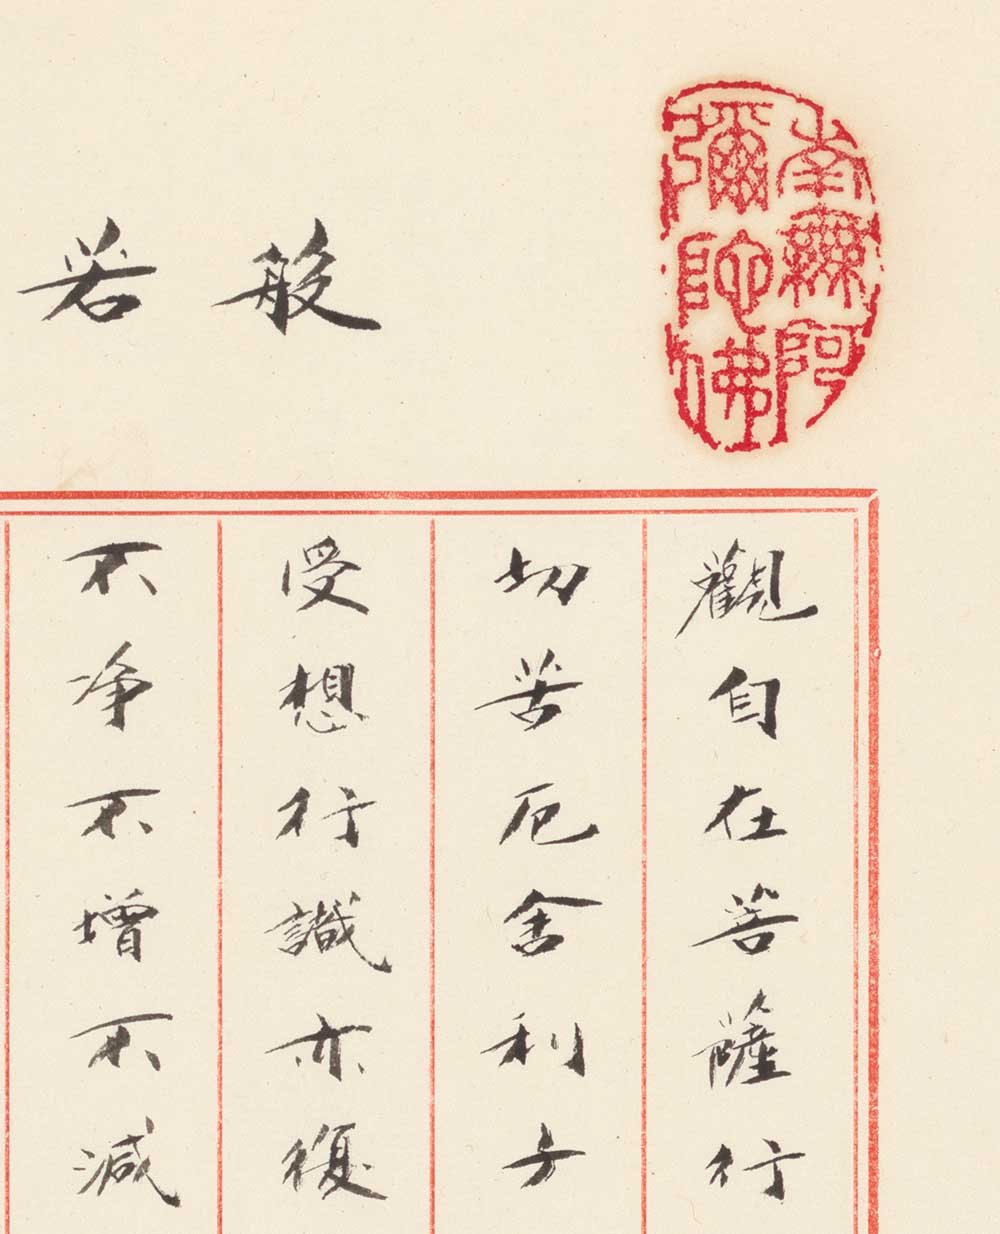 南無阿
彌陀佛
般若
觀自在菩薩行
切苦厄舍利子
受想行識亦復
不净不增不減